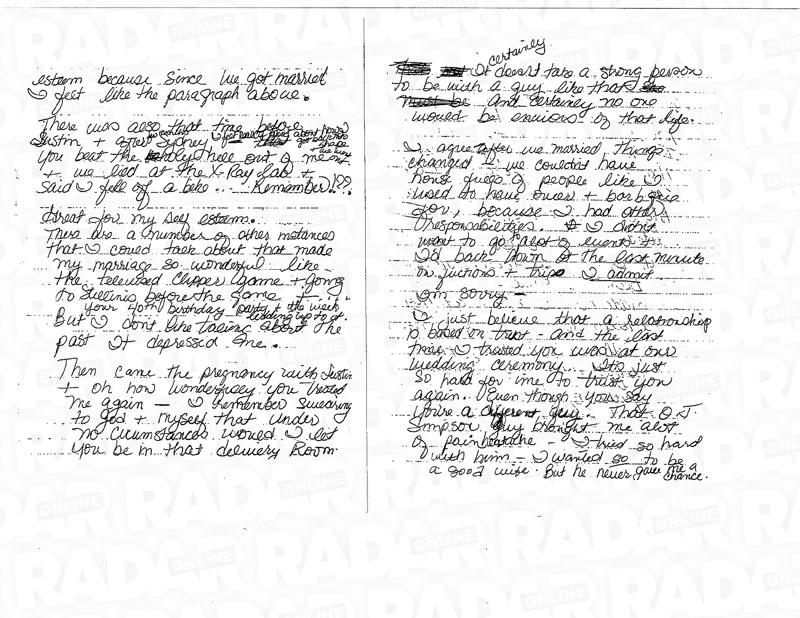 esteem because since we got married
I feel like the paragraph above.
There was also that time before
Justin + after Sydney
You beat the holy hell out of me
+ we lied at the X-Ray lab +
said I fell off a bike . . . Remember!??
Great for my self esteem.
There are a number of other instances
that I could talk about that made
my marriage so wonderful like -
the televised Clipper game + going
to before the game + . . .
your 40th birthday party + the week
leading up to it.
But I don't like talking about the
past It depressed me.
Then came the pregnancy with Justin
+ oh how wonderfully you treated
me again — I remember swearing
to God + myself that under
no circumstances would I let
you be in that delivery Room.
certainly
It doesn't take a strong person
to be with a guy like that
and certainly no one
would be envious of that life.
I agree after we married things
changed - we couldn't have
house fuls of people like I
used to have over + barbque
for, because I had other
responsibilities. I didn't
want to go to alot of events +
I'd back down at the last minute
on fuctions + trips I admit
I'm sorry —
I just believe that a relationship
is based on trust - and the last
time I trusted you was at our
wedding ceremony. Its just
so hard for me to trust you
again. Even though you say
you're a different guy. That O.J.
Simpson guy brought me alot
of pain heartache - I tried so hard
with him - I wanted so to be
a good wife. But he never gave me a
chance.